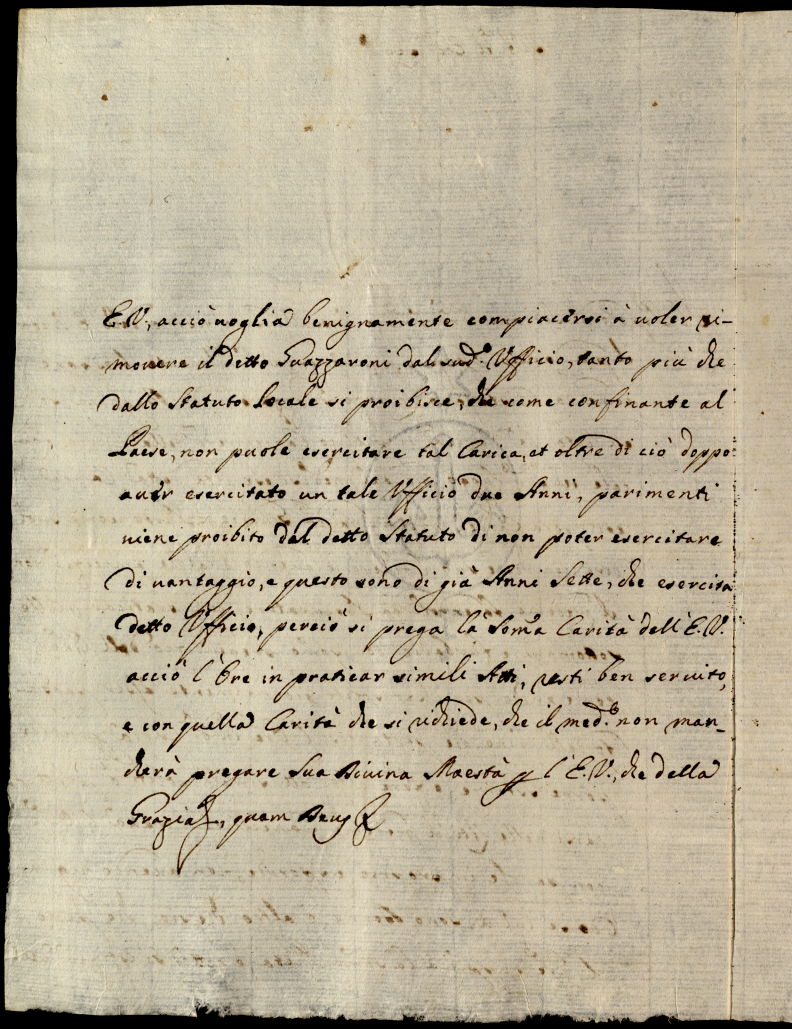 E.V., acciò voglia benignamente compiacersi à voler ri-
movere il detto Guazzaroni dal sud.º Vfficio, tanto più che
dallo Statuto Locale si proibisce, che come confinante al
Paese, non puole esercitare tal Carica, et oltre di ciò doppo
auer esercitato un tale Vfficio due Anni, parimenti
uiene proibito dal detto Statuto di non poter esercitare
di uantaggio, e questo sono di già Anni Sette, che esercita
detto Vfficio, perciò si prega la Som̃a Carità dell'E.V.
acciò l'Ore in praticar simili Atti, resti ben seruito,
e con quella Carità che si richiede, che il med.º non man-
cherà pregare Sua Diuina Maestà p l'E.V., che della
Grazia, quam Deus